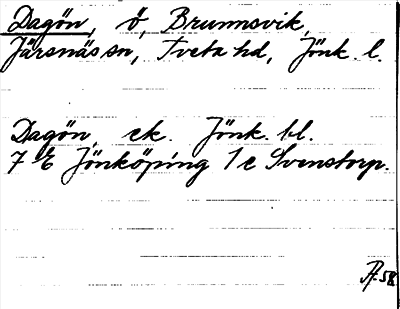 Dagön, ö, Brunnsvik,
Järsnäs sn, Tveta hd, Jönk. l.
Dagön, ek. Jönk. bl.
7 E Jönköping 1 e Svenstorp.